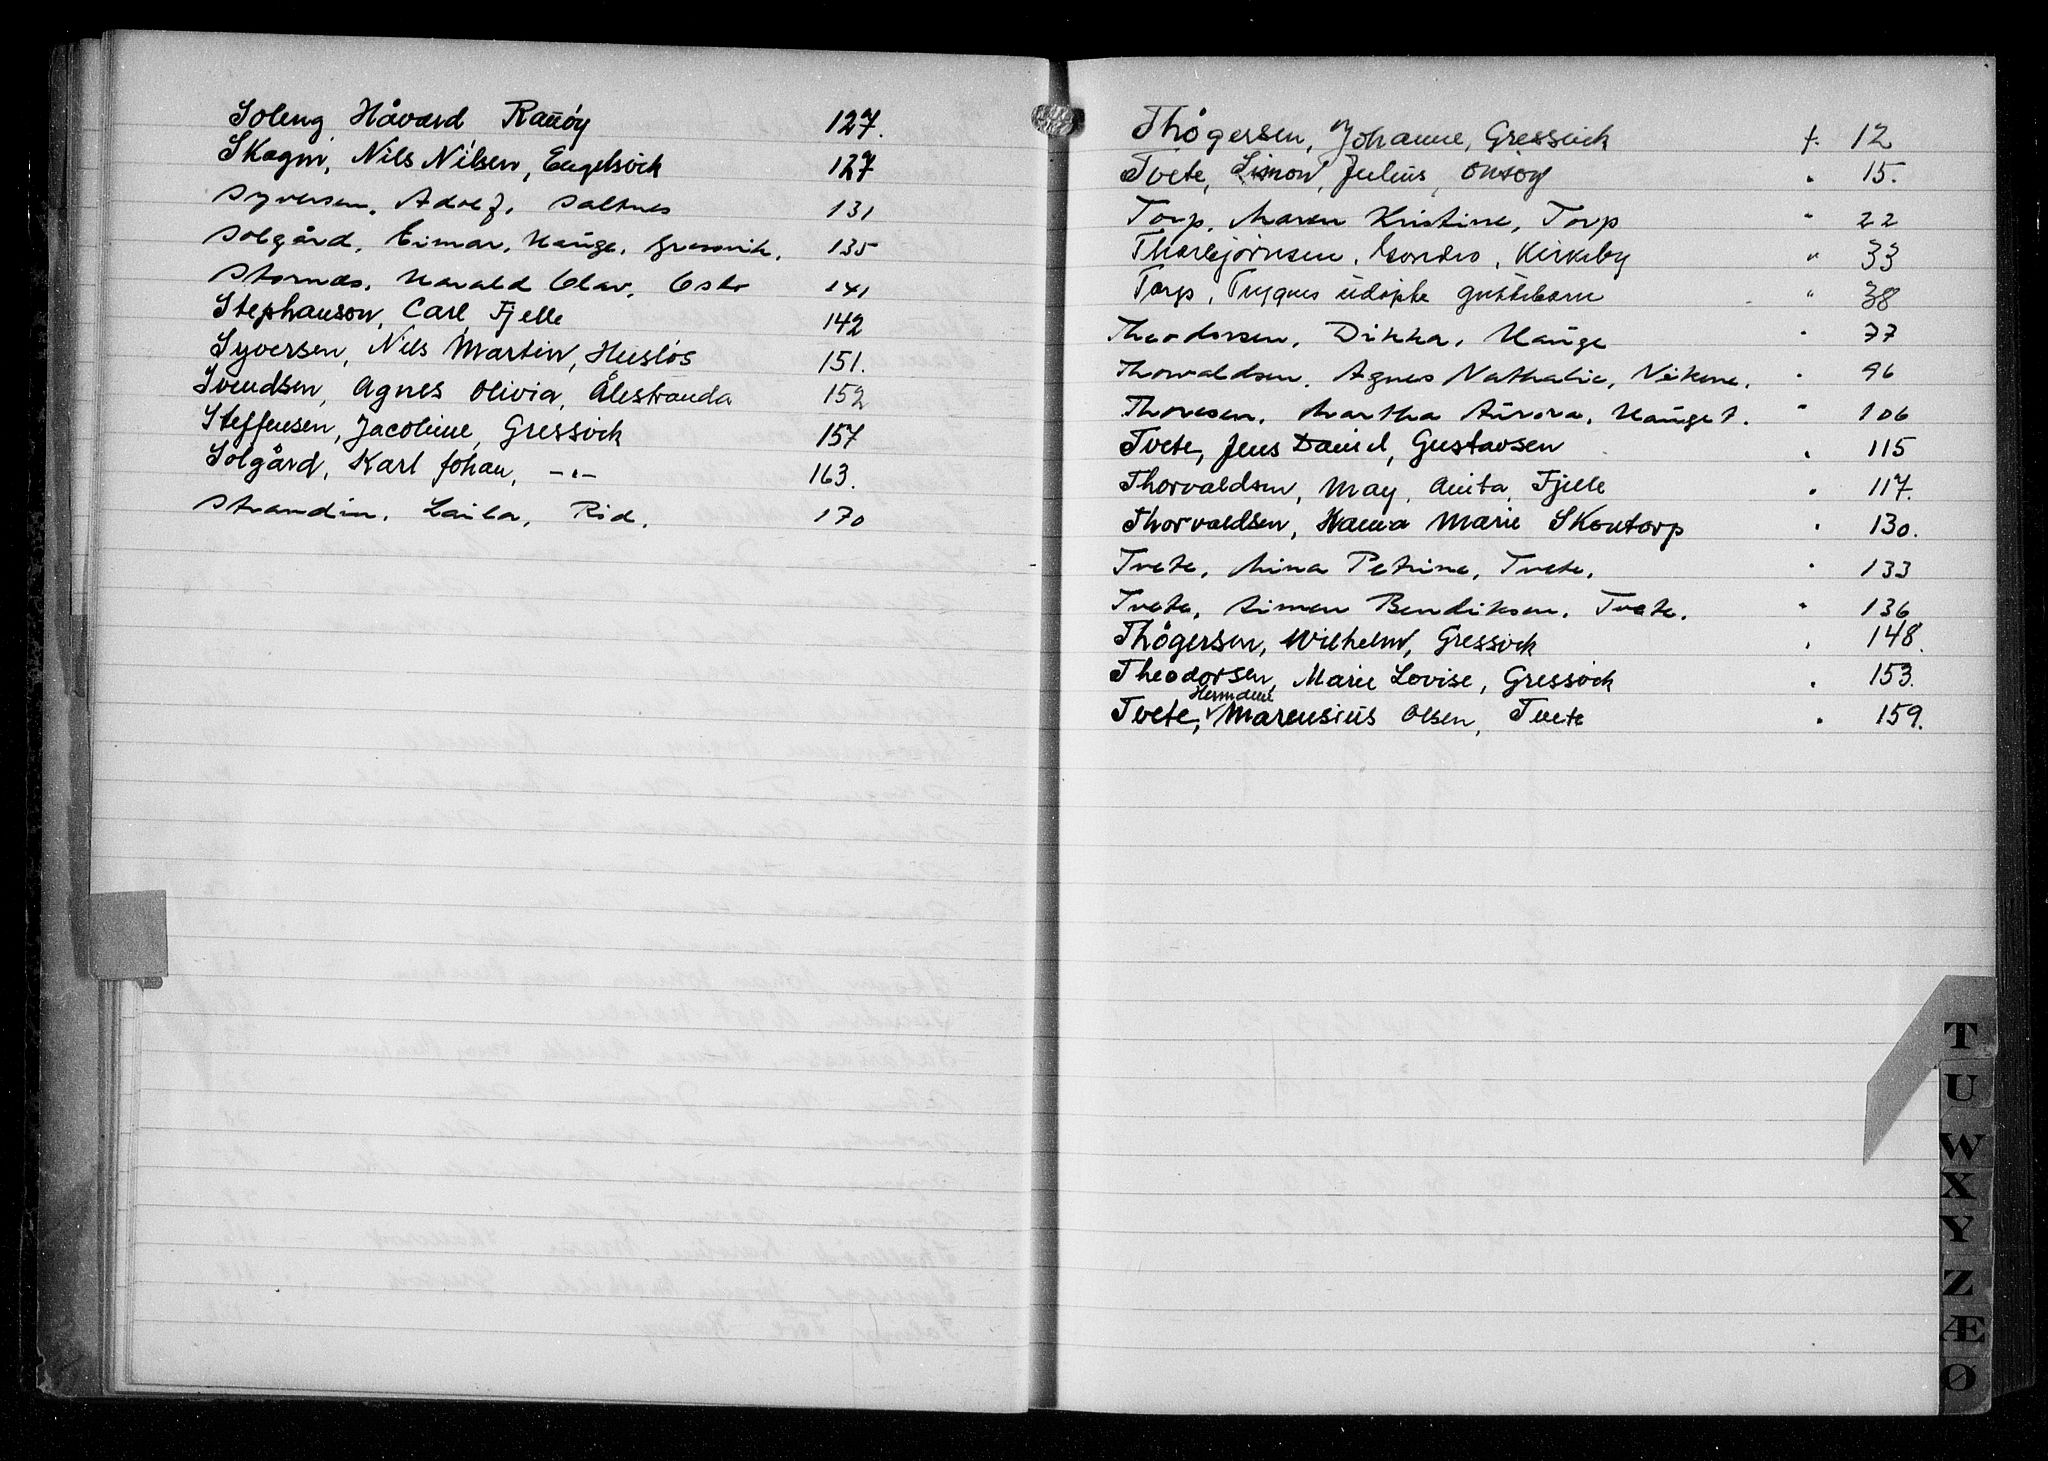 Soleng Håvard Rauøy 127.
Skagm, Nils Nilsen, Engelsvik 127
Syversen, Adolf, Saltnes 131
Solgård, Einar, Hauge, Gressvik, 135
Stornæs, Harald Olav, Oslo 141
Stephanson, Carl, Fjelle 142
Syversen, Nils Martin, Husløs 151.
Svendsen, Agnes Olivia, Ålestranda 152
Steffensen, Jacobine, Gressvik 157
Solgård, Karl Johan, -"- 163.
Strandin, Laila, Rød, 170
Thøgersen, Johanne, Gressvick f. 12
Tvete, Simon, Julius, Onsøy " 15.
Torp, Maren Kristine, Torp " 22
Thorbjørnsen, Kirkeby " 33
Torp, Trygves udøpte guttebarn " 38
Theodorsen, Dikka, Hauge " 77
Thorvaldsen, Agnes Nathalie, Vikene, " 96
Thoresen, Martha Aurora, Hauget. " 106
Tvete, Jens Daniel, Gustavsen " 115
Thorvaldsen, May, Anita, Fjelle " 117.
Thorvaldsen, Hanna Marie Skontorp " 130.
Tvete, Mina Petrine, Tvete, " 133
Tvete, Simen Bendiksen, Tvete, " 136
Thøgersen, Wilhelm, Gressvik " 148.
Theodorsen, Marie Lovise, Gressvik " 153.
Hermdine
Tvete, Marensius Olsen, Tvete " 159.
T
U
W
X
Y
Z
Æ
Ø